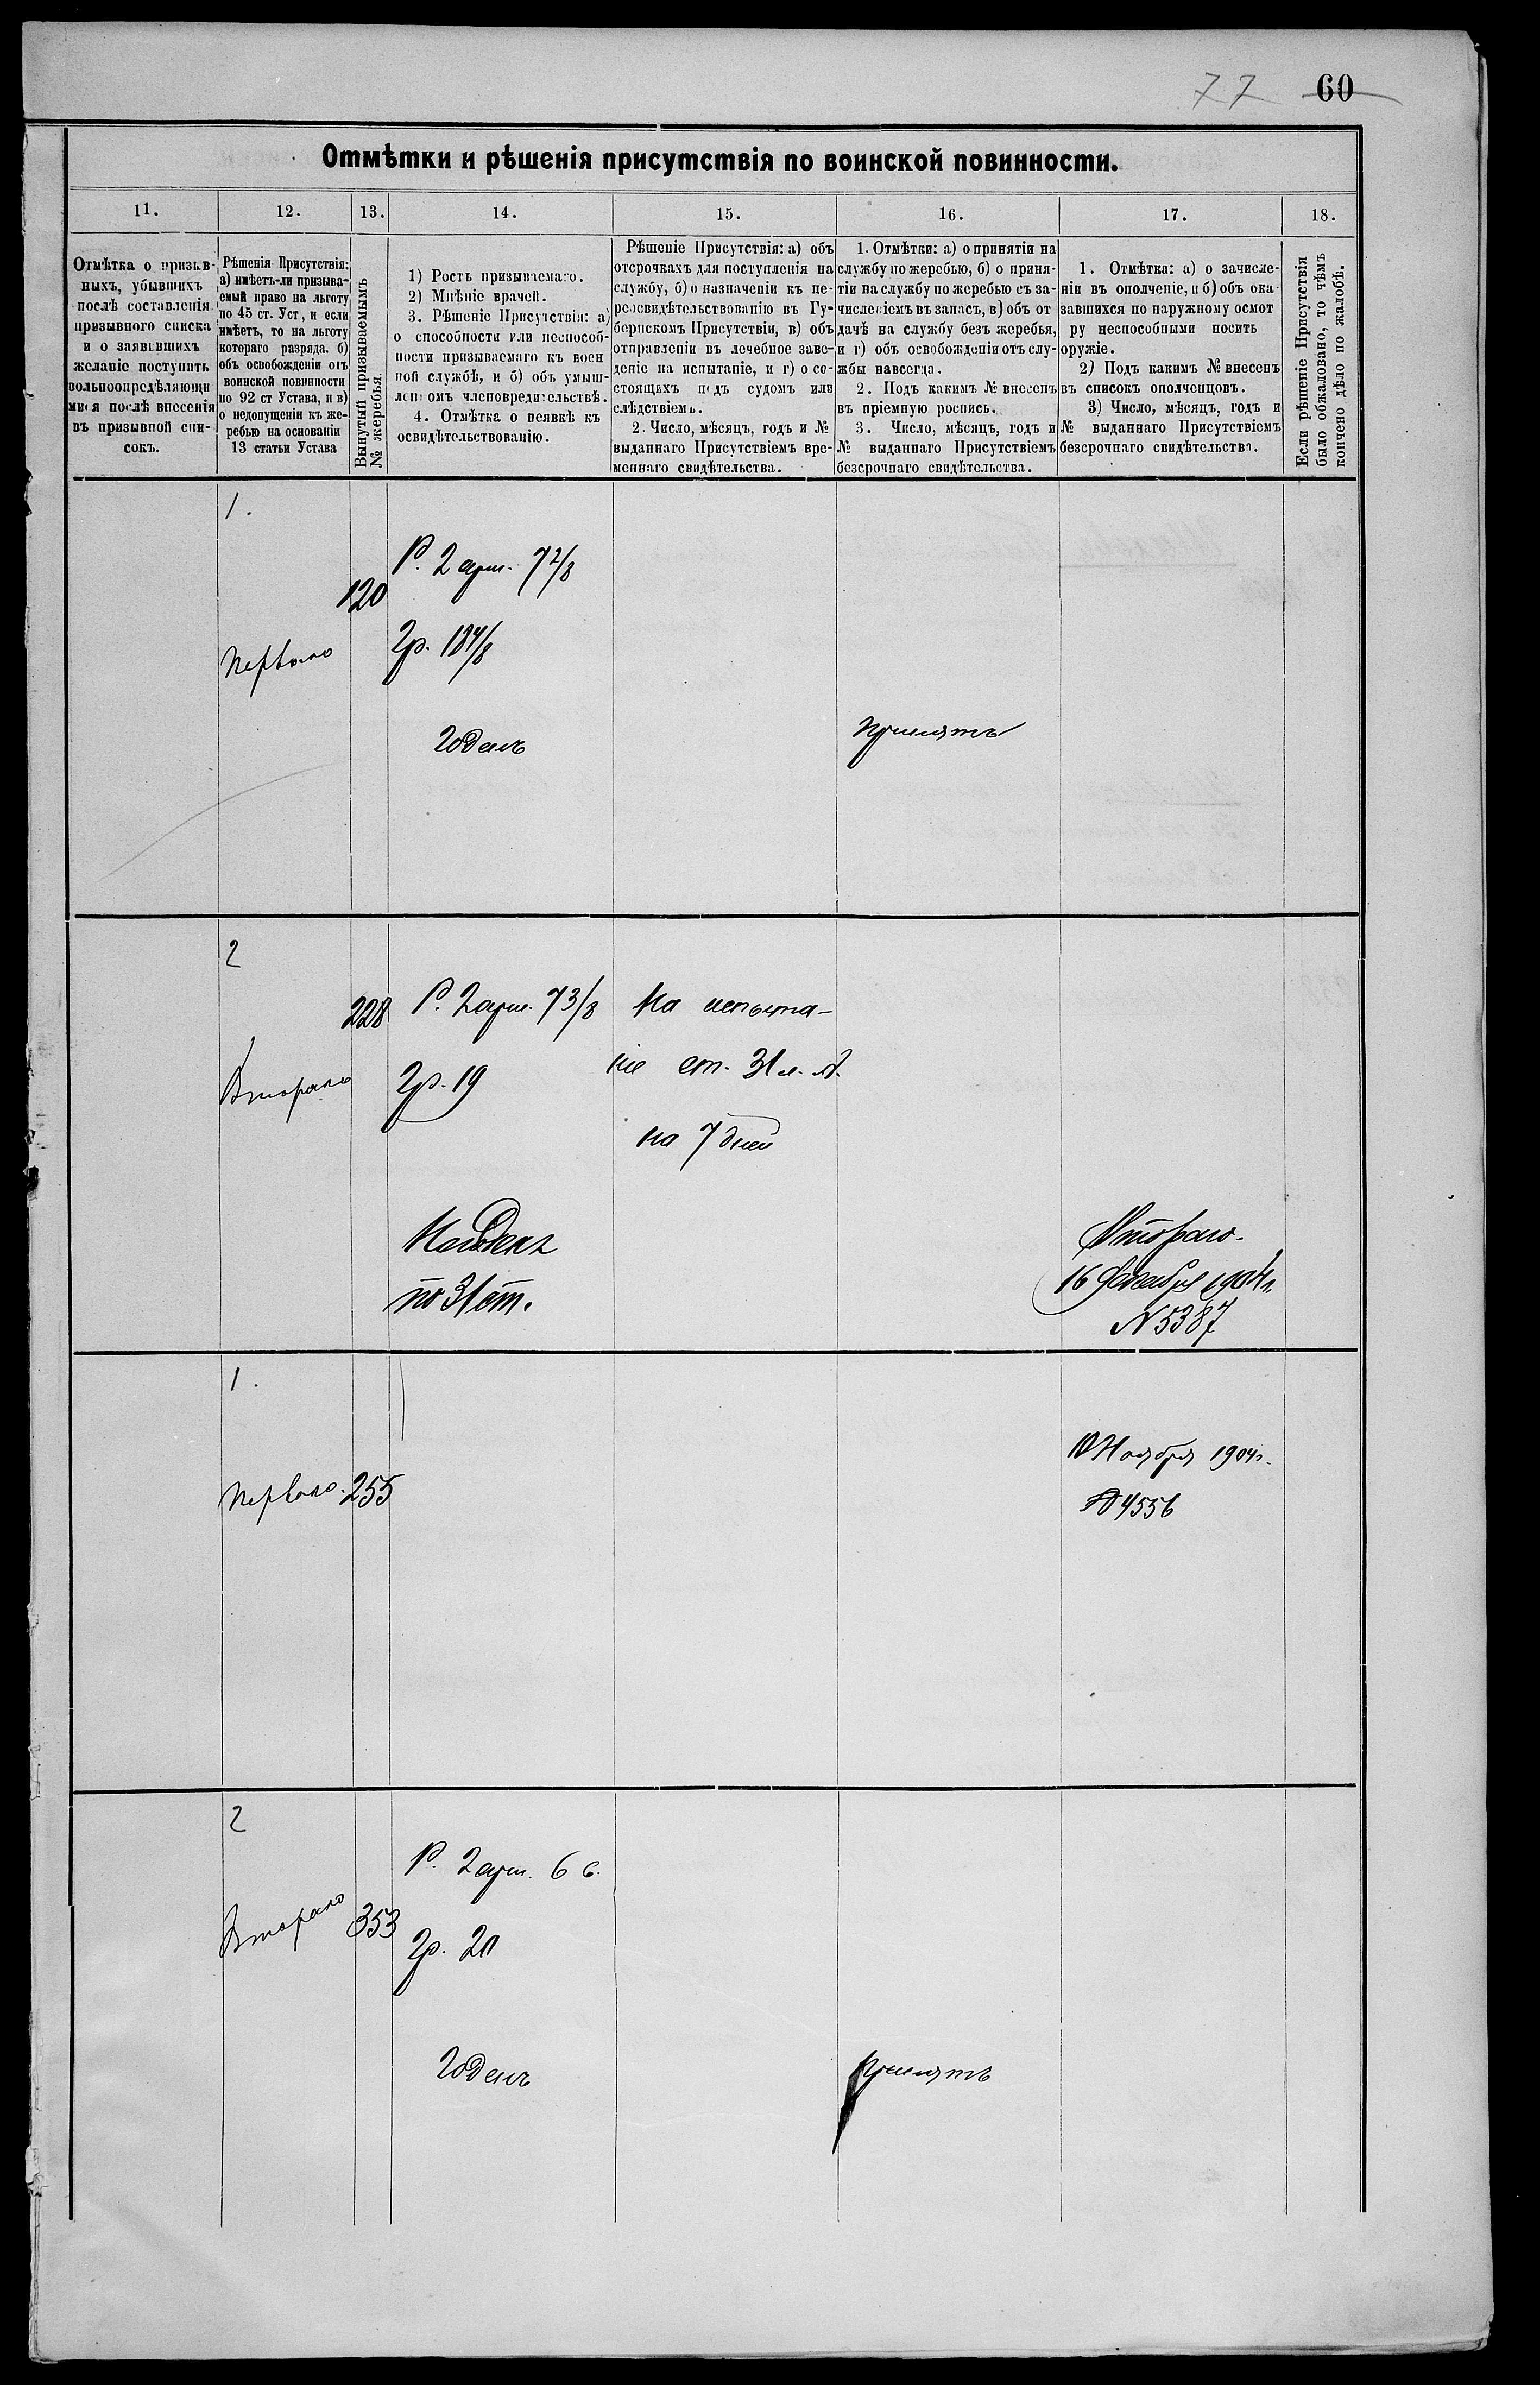 77 60
Отмѣтки и рѣшенія присутствія по воинской повинности.
11. 12. 13. 14. 15. 16. 17. 18.
Отмѣтка о призыв-
ныхъ, убывшихъ
послѣ составленія
призывного списка
и о заявившихъ
желаніе поступить
вольноопредѣляющи
мися послѣ внесенія
въ призывной спи-
сокъ.
Рѣшенія Присутствія:
а) имѣетъ-ли призыва-
емый право на льготу
по 45 ст. Уст, и если
имѣетъ, то на льготу
котораго разряда. б)
объ освобожденіи отъ
воинской повинности
по 92 ст Устава, и в)
о недопущеніи къ же-
ребью на основаніи
13 статьи Устава
Вынутый призываемымъ
№ жеребья.
1) Ростъ призываемаго.
2) Мнѣніе врачей.
3. Рѣшеніе Присутствія: а)
о способности или неспособ-
ности призываемаго къ воен
ной службѣ, и б) объ умыш-
ленномъ членовредительствѣ.
4. Отмѣтка о неявкѣ къ
освидѣтельствованію.
Рѣшеніе Присутствія: а) объ
отсрочкахъ для поступленія на
службу, б) о назначеніи къ пе-
реосвидѣтельствованію въ Гу-
бернскомъ Присутствіи, в) объ
отправленіи въ лечебное заве-
деніе на испытаніе, и г) о со-
стоящихъ подъ судомъ или
слѣдствіемъ.
2. Число, мѣсяцъ, годъ и №
выданнаго Присутствіемъ вре-
меннаго свидѣтельства.
1. Отмѣтки: а) о принятіи на
службу по жеребью, б) о приня-
тіи на службу по жеребью съ за-
численіемъ въ запасъ, в) объ от
дачѣ на службу безъ жеребья,
и г) объ освобожденіи отъ слу-
жбы навсегда.
2. Подъ какимъ № внесенъ
въ пріемную роспись.
3. Число, мѣсяцъ, годъ и
№ выданнаго Присутствіемъ
безсрочнаго свидѣтельства.
1. Отмѣтка: а) о зачисле-
ніи въ ополченіе, и б) объ ока
завшихся по наружному осмот
ру неспособными носить
оружіе.
2) Подъ какимъ № внесенъ
въ списокъ ополченцовъ.
3) Число, мѣсяцъ, годъ и
№ выданнаго Присутствіемъ
безсрочнаго свидѣтельства.
Если рѣшеніе Присутствія
было обжаловано, то чѣмъ
кончено дѣло по жалобѣ.
1.
Перваго
120
Р. 2 арш. 7 2/8
Гр. 18 4/8
Годенъ
Принятъ
2
Втораго
228
Р. 2 арш. 7 3/8
Гр. 19
Негоденъ
по 31 ст.
На испыта-
ніе ст. 31 л. А.
на 7 дней
Втораго.
16 Декабря 1904 г.
N 5387
1.
Перваго.
255
10 Ноября 1904 г.
№ 4556
2
Втораго
353
Р. 2 арш. 6 в.
Гр. 20
Годенъ
Принятъ